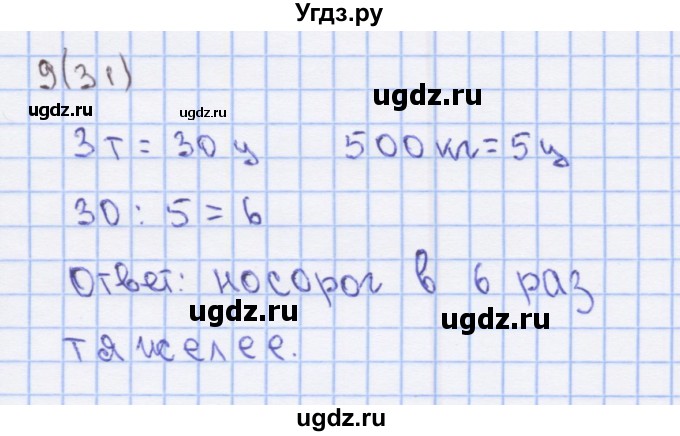 Угдз.ру
9(31)
ugdz.ru ugdz.ru ugdz.ru
3 т = 30 ц 500 кг = 5 ц
30 : 5 = 6
Ответ: носорог в 6 раз
ugdz.ru ugdz.ru
тяжелее.
ugdz.ru